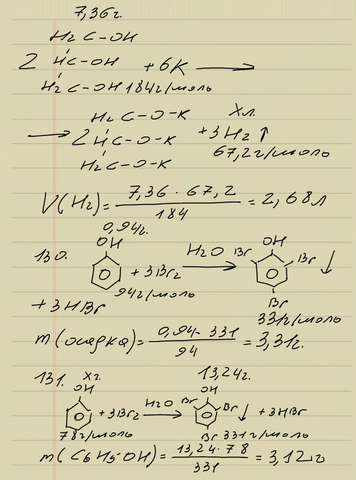 7,36г.
H₂C-OH
2 HC-OH + 6K →
H₂C-OH 184г/моль
H₂C-O-K Xл.
→ 2 HC-O-K + 3H₂↑
H₂C-O-K 67,2г/моль
V(H₂) = 7,36 · 67,2 / 184 = 2,68л
0,94г.
130. OH + 3Br₂ H₂O → Br OH Br Br ↓
94г/моль 331г/моль
+ 3HBr
m(осадка) = 0,94 · 331 / 94 = 3,31г.
131. Xг. 13,24г.
OH + 3Br₂ H₂O → OH Br Br Br ↓ + 3HBr
78г/моль 331г/моль
m(C6H5OH) = 13,24 · 78 / 331 = 3,12г